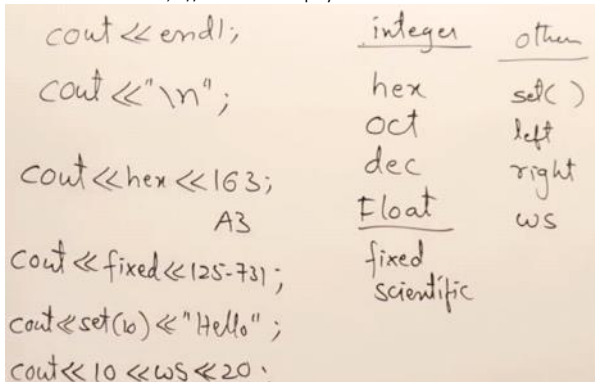 cout << endl;
cout << "\n";
cout << hex << 163;
A3
cout << fixed << 125.731;
cout << set(10) << "Hello";
cout << 10 << ws << 20;
integer
hex
oct
dec
Float
fixed
scientific
other
set( )
left
right
ws